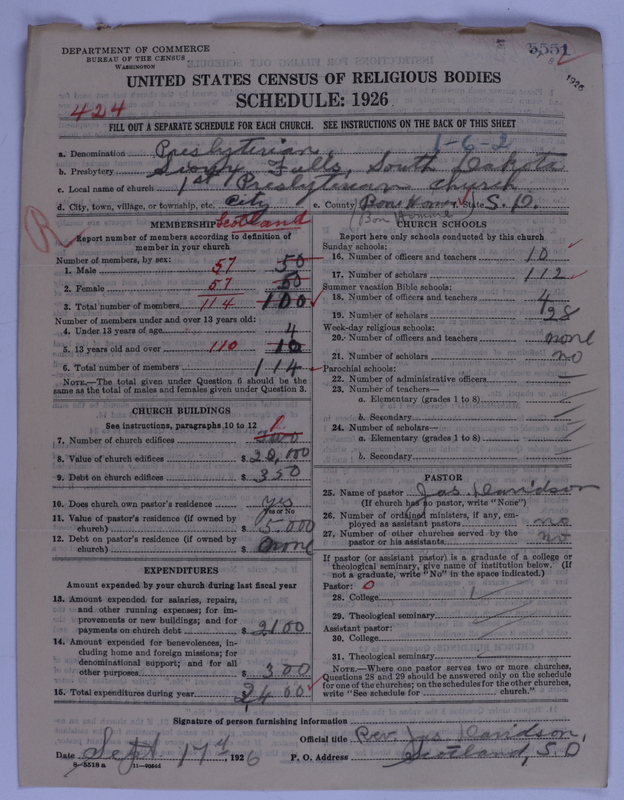 DEPARTMENT OF COMMERCE
BUREAU OF THE CENSUS
WASHINGTON
3,551
1926
UNITED STATES CENSUS OF RELIGIOUS BODIES
SCHEDULE: 1926
424
FILL OUT A SEPARATE SCHEDULE FOR EACH CHURCH. SEE INSTRUCTIONS ON THE BACK OF THIS SHEET
1-6-2
a. Denomination Presbyterian
b. Presbytery Sioux Falls, South Dakota
c. Local name of church 1st Presbyterian Church
d. City, town, village, or township, etc. City e. County Bone Home f. State S. D.
(Bon Homme)
Scotland
R
MEMBERSHIP
Report number of members according to definition of
member in your church
Number of members, by sex:
1. Male 57 50
2. Female 57 50
3. Total number of members 114 100
Number of members under and over 13 years old:
4. Under 13 years of age 4
5. 13 years old and over 110 10
6. Total number of members 114
NOTE.—The total given under Question 6 should be the
same as the total of males and females given under Question 3.
CHURCH BUILDINGS
See instructions, paragraphs 10 to 12
7. Number of church edifices 1 Two
8. Value of church edifices $ 20,000
9. Debt on church edifices $ 350
10. Does church own pastor's residence Yes
Yes or No
11. Value of pastor's residence (if owned by
church) $ 5,000
12. Debt on pastor's residence (if owned by
church) $ None
EXPENDITURES
Amount expended by your church during last fiscal year
13. Amount expended for salaries, repairs,
and other running expenses; for im-
provements or new buildings; and for
payments on church debt $ 2100
14. Amount expended for benevolences, in-
cluding home and foreign missions; for
denominational support; and for all
other purposes $ 300
15. Total expenditures during year $ 2400
CHURCH SCHOOLS
Report here only schools conducted by this church
Sunday schools:
16. Number of officers and teachers 10
17. Number of scholars 112
Summer vacation Bible schools:
18. Number of officers and teachers 4
19. Number of scholars 28
Week-day religious schools:
20. Number of officers and teachers none
21. Number of scholars no
Parochial schools:
22. Number of administrative officers
23. Number of teachers—
a. Elementary (grades 1 to 8)
b. Secondary
24. Number of scholars—
a. Elementary (grades 1 to 8)
b. Secondary
PASTOR
25. Name of pastor Jas Davidson
(If church has no pastor, write "None")
26. Number of ordained ministers, if any, em-
ployed as assistant pastors no
27. Number of other churches served by the
pastor or his assistants no
If pastor (or assistant pastor) is a graduate of a college or
theological seminary, give name of institution below. (If
not a graduate, write "No" in the space indicated.)
Pastor: 0
28. College
29. Theological seminary
Assistant pastor:
30. College
31. Theological seminary
NOTE.—Where one pastor serves two or more churches,
Questions 28 and 29 should be answered only on the schedule
for one of the churches; on the schedules for the other churches,
write "See schedule for church."
Signature of person furnishing information
Official title Rev. Jas Davidson,
Date Sept 17th, 1926 P. O. Address Scotland, S. D
8-5518 a